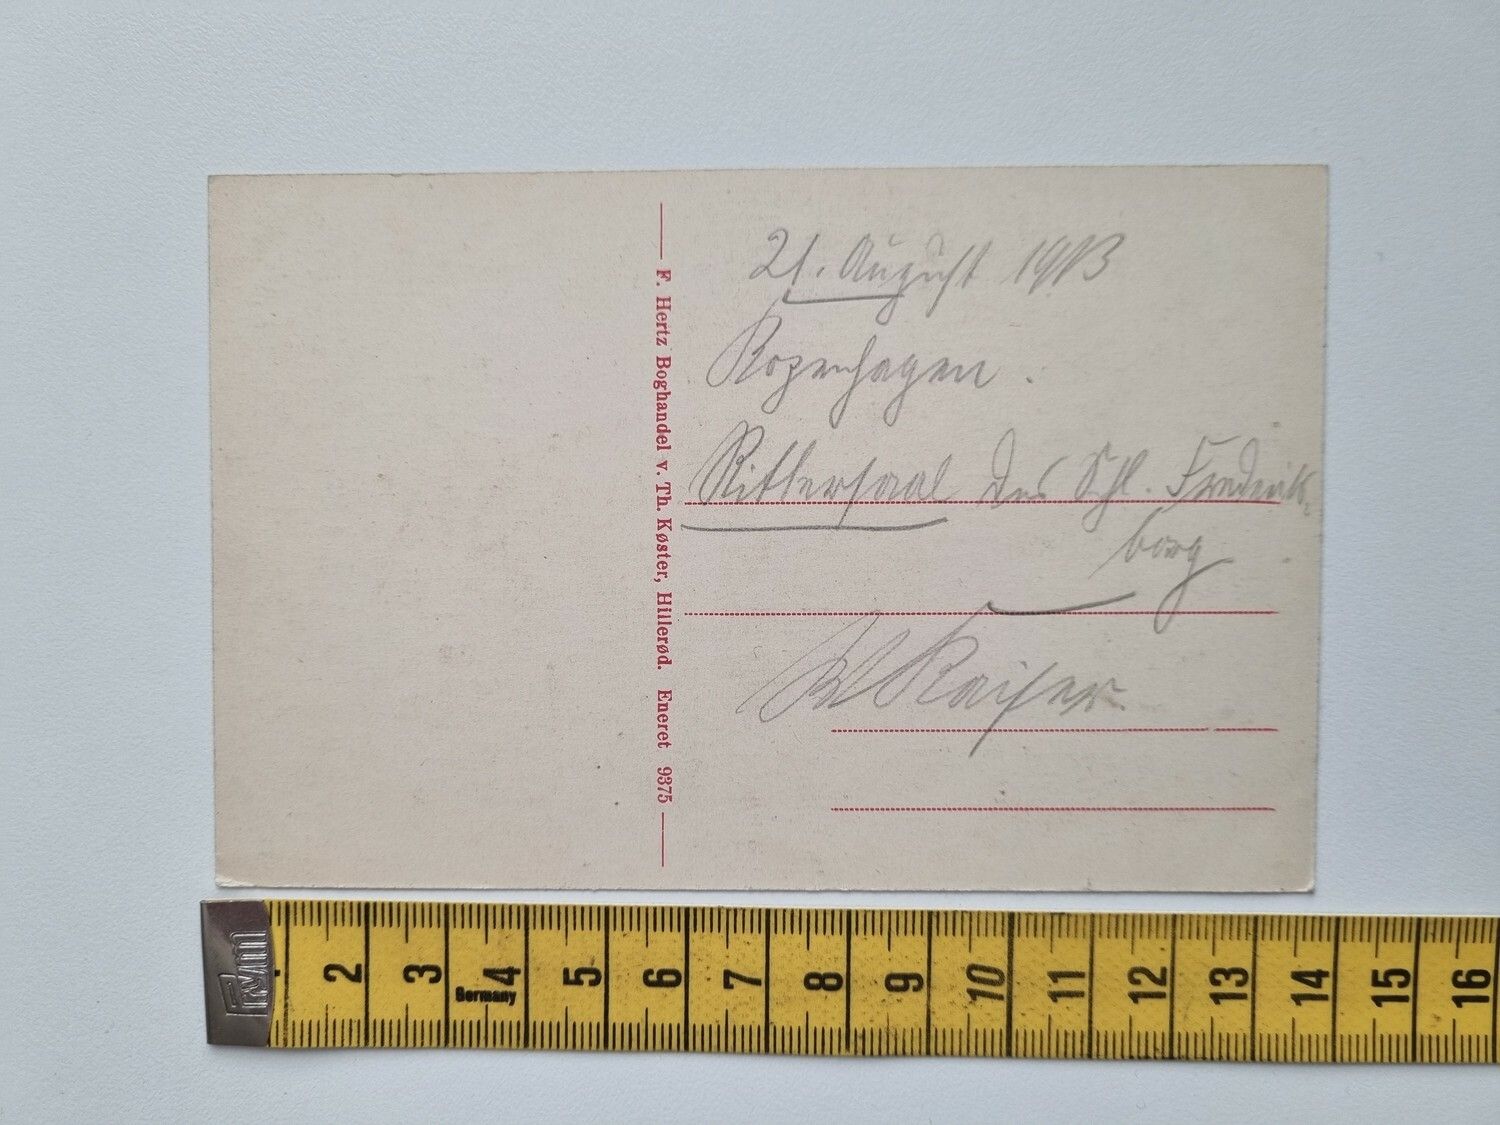 21. August 1913
Kopenhagen.
Rittersaal des Schl. Frederiks-
borg
W Kaiser.
F. Hertz Boghandel v. Th. Køster, Hillerød. Eneret 9375
Prym
2 3 4 5 6 7 8 9 10 11 12 13 14 15 16
Germany